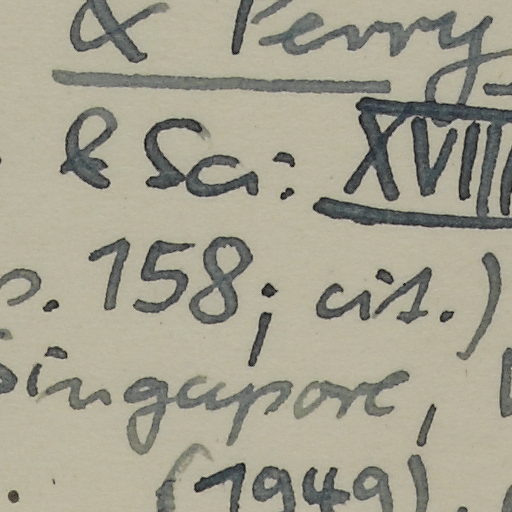 & Perry
& Sci: XVIII
p. 158; cit.)
Singapore,
(1949).